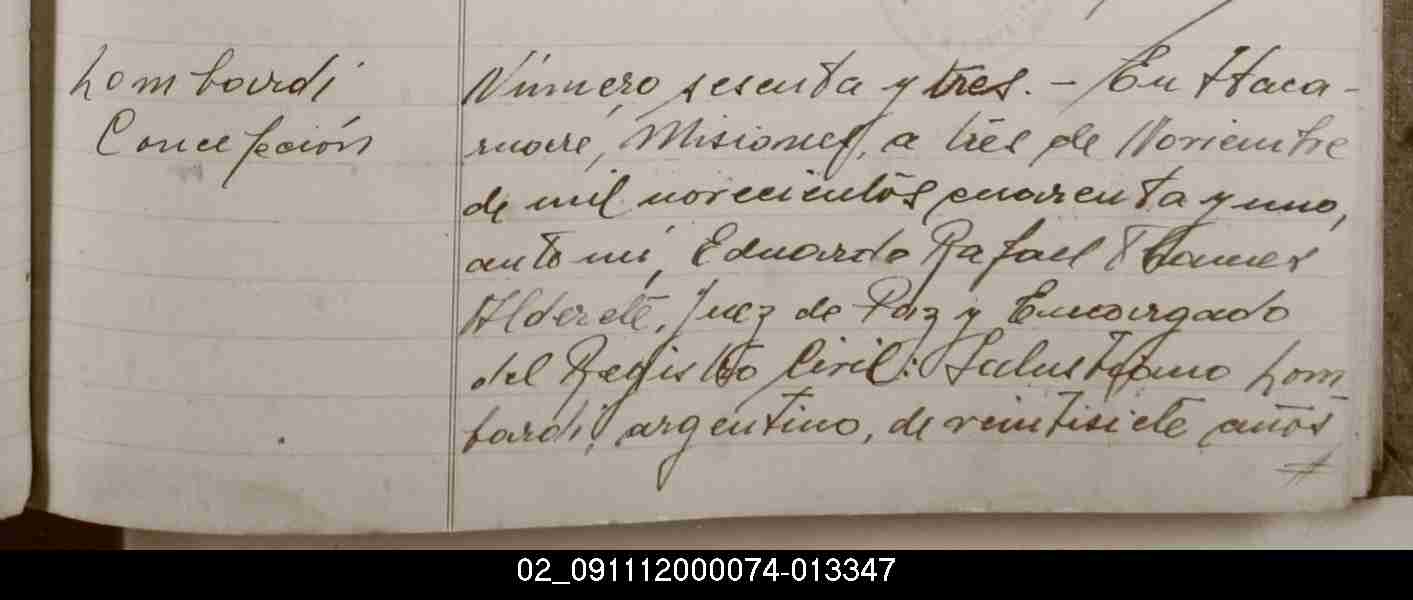 Lombardi
Concepción
Número sesenta y tres. - En Itaca-
ruaré, Misiones, a tres de Noviembre
de mil novecientos cuarenta y uno,
ante mí, Eduardo Rafael Thames
Alderete, Juez de Paz y Encargado
del Registro Civil: Salustiano Lom
bardi, argentino, de veintisiete años
02_091112000074-013347